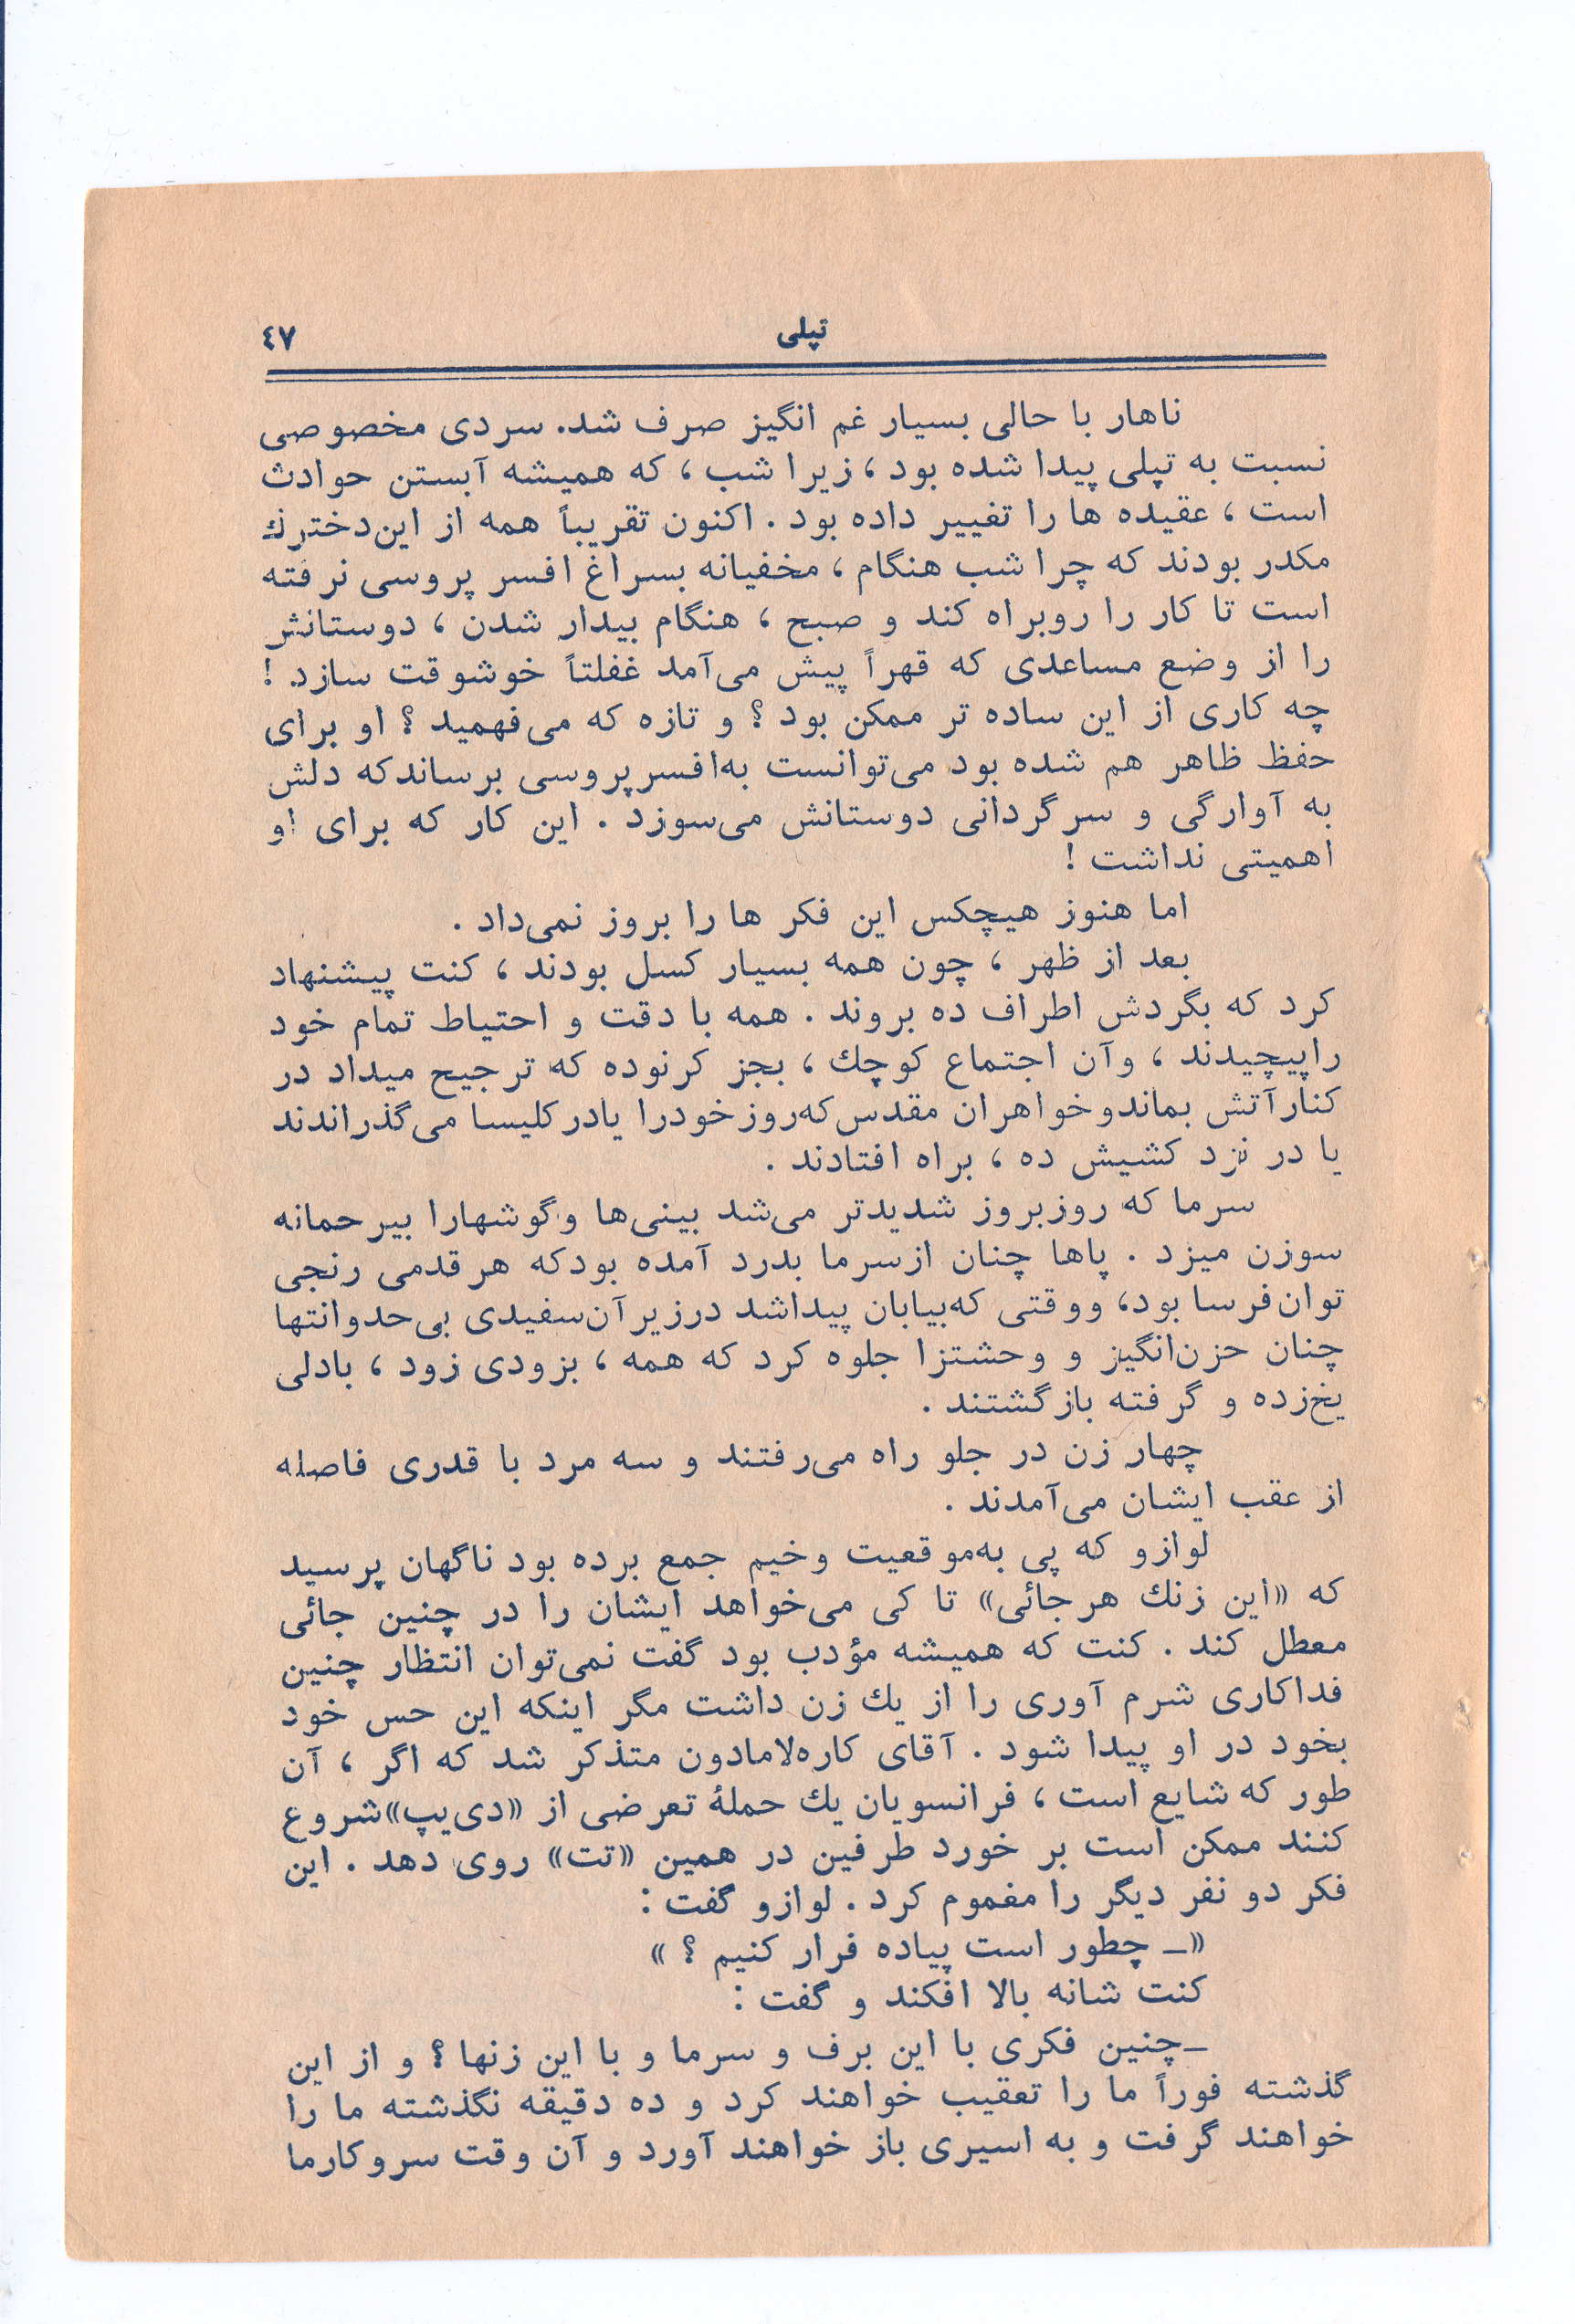 تپلی
۴۷
ناهار با حالی بسیار غم انگیز صرف شد. سردی مخصوصی
نسبت به تپلی پیدا شده بود ، زیرا شب ، که همیشه آبستن حوادث
است ، عقیده ها را تغییر داده بود . اکنون تقریباً همه از این‌دخترك
مکدر بودند که چرا شب هنگام ، مخفیانه بسراغ افسر پروسی نرفته
است تا کار را روبراه کند و صبح ، هنگام بیدار شدن ، دوستانش
را از وضع مساعدی که قهراً پیش می‌آمد غفلتاً خوشوقت سازد. !
چه کاری از این ساده تر ممکن بود ؟ و تازه که می‌فهمید ؟ او برای
حفظ ظاهر هم شده بود می‌توانست به‌افسرپروسی برساندکه دلش
به آوارگی و سرگردانی دوستانش می‌سوزد . این کار که برای او
اهمیتی نداشت !
اما هنوز هیچکس این فکر ها را بروز نمی‌داد .
بعد از ظهر ، چون همه بسیار کسل بودند ، کنت پیشنهاد
کرد که بگردش اطراف ده بروند . همه با دقت و احتیاط تمام خود
راپیچیدند ، وآن اجتماع کوچك ، بجز کرنوده که ترجیح میداد در
کنارآتش بماندوخواهران مقدس‌که‌روزخودرا یادرکلیسا می‌گذراندند
یا در نزد کشیش ده ، براه افتادند .
سرما که روزبروز شدیدتر می‌شد بینی‌ها وگوشهارا بیرحمانه
سوزن میزد . پاها چنان ازسرما بدرد آمده بودکه هرقدمی رنجی
توان‌فرسا بود، ووقتی که‌بیابان پیداشد درزیرآن‌سفیدی بی‌حدوانتها
چنان حزن‌انگیز و وحشتزا جلوه کرد که همه ، بزودی زود ، بادلی
یخ‌زده و گرفته بازگشتند .
چهار زن در جلو راه می‌رفتند و سه مرد با قدری فاصله
از عقب ایشان می‌آمدند .
لوازو که پی به‌موقعیت وخیم جمع برده بود ناگهان پرسید
که «این زنك هرجائی» تا کی می‌خواهد ایشان را در چنین جائی
معطل کند . کنت که همیشه مؤدب بود گفت نمی‌توان انتظار چنین
فداکاری شرم آوری را از یك زن داشت مگر اینکه این حس خود
بخود در او پیدا شود . آقای کاره‌لامادون متذکر شد که اگر ، آن
طور که شایع است ، فرانسویان یك حملهٔ تعرضی از «دی‌یپ»شروع
کنند ممکن است بر خورد طرفین در همین «تت» روی دهد . این
فکر دو نفر دیگر را مغموم کرد . لوازو گفت :
«ــ چطور است پیاده فرار کنیم ؟ »
کنت شانه بالا افکند و گفت :
ــچنین فکری با این برف و سرما و با این زنها ؟ و از این
گذشته فوراً ما را تعقیب خواهند کرد و ده دقیقه نگذشته ما را
خواهند گرفت و به اسیری باز خواهند آورد و آن وقت سروکارما